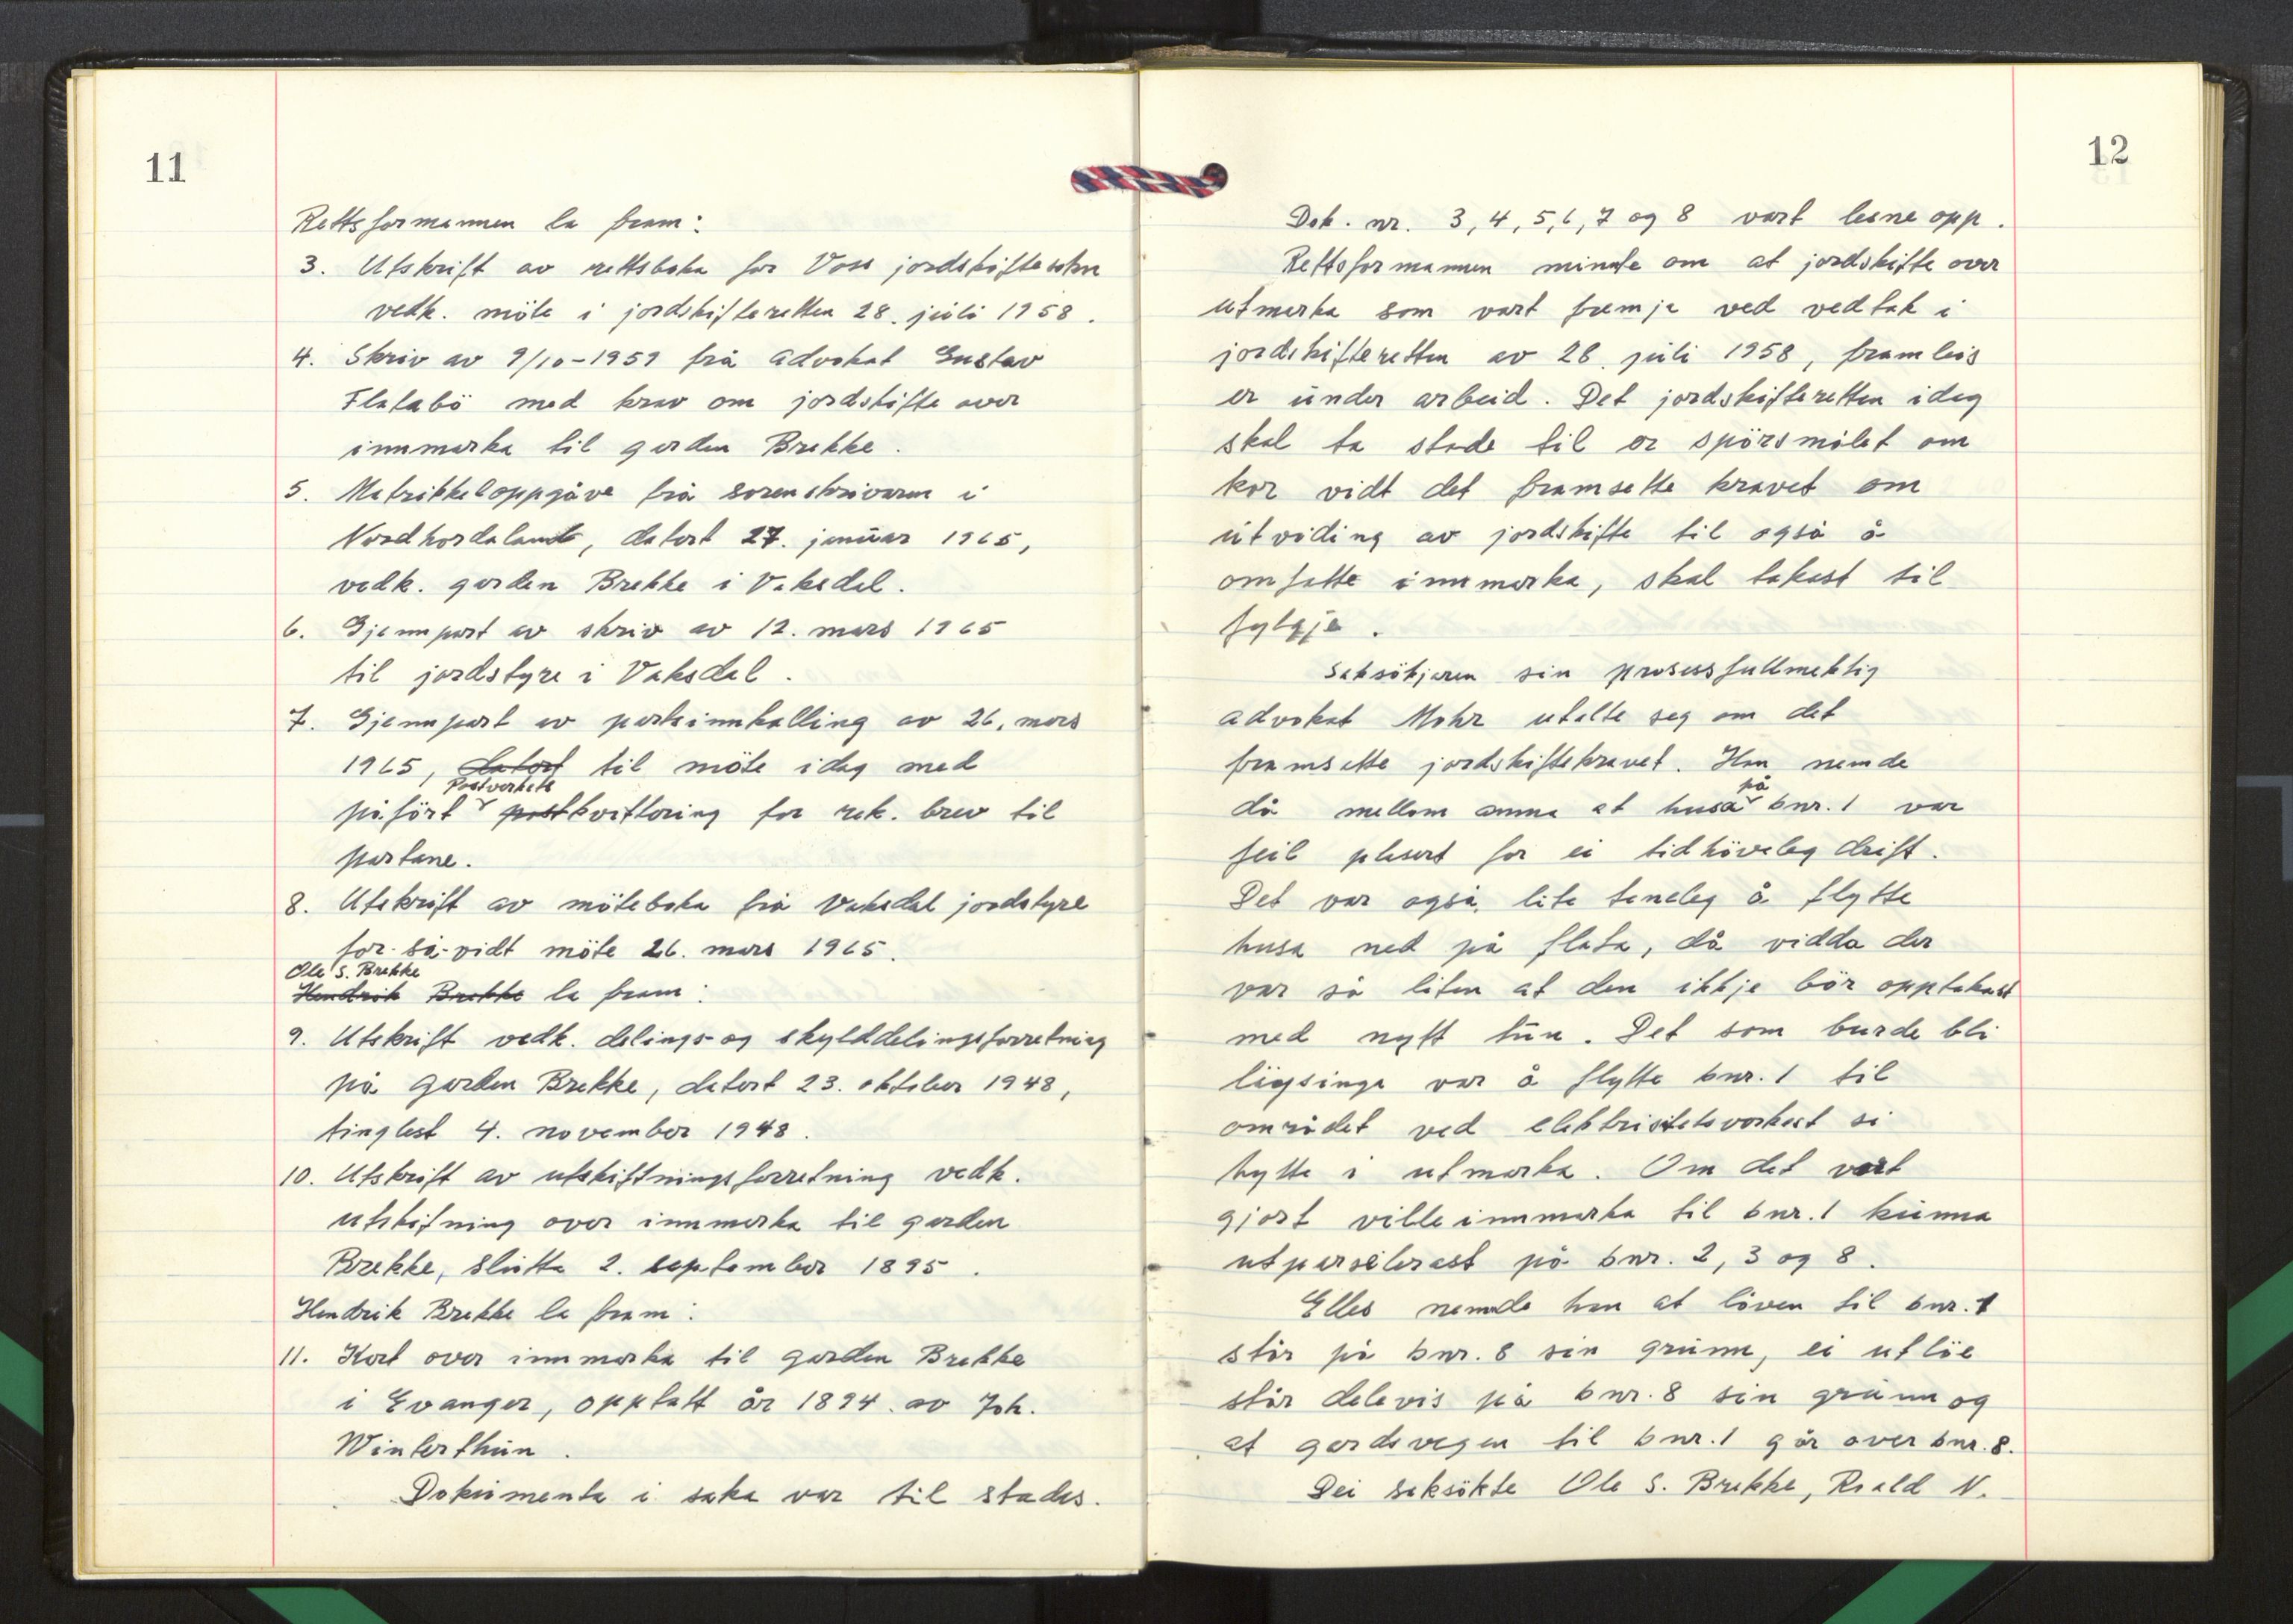 11
Rettsformannen la fram:
3. Utskrift av rettsboka for Voss jordskiftesokn
vedk. möte i jordskifteretten 28. juli 1958.
4. Skriv av 9/10-1959 frå advokat Gustav
Flatabö med krav om jordskifte over
innmarka til garden Brekke.
5. Matrikkeloppgåve frå sorenskrivaren i
Nordhordaland, datert 27. januar 1965,
vedk. garden Brekke i Vaksdal.
6. Gjennpart av skriv av 12. mars 1965
til jordstyre i Vaksdal.
7. Gjennpart av partsinnkalling av 26. mars
1965, datert til möte idag med
Postverkets
påfört postkvittering for rek. brev til
partane.
8. Utskrift av möteboka frå Vaksdal jordstyre
for-så-vidt möte 26. mars 1965.
Ole S. Brekke
Hendrik Brekke la fram:
9. Utskrift vedk. delings- og skylddelingsforretning
på garden Brekke, datert 23. oktober 1948,
tinglest 4. november 1948.
10. Utskrift av utskiftningsforretning vedk.
utskifning over innmarka til garden
Brekke, slutta 2. september 1895.
Hendrik Brekke la fram:
11. Kart over innmarka til garden Brekke
i Evanger, opptatt år 1894. av Joh.
Winterthun.
Dokumenta i saka var til stades.
12
Dok. nr. 3, 4, 5, 6, 7 og 8 vart lesne opp.
Rettsformannen minnte om at jordskifte over
utmarka som vart fremja ved vedtak i
jordskifteretten av 28. juli 1958, framleis
er under arbeid. Det jordskifteretten idag
skal ta stode til er spörsmålet om
kor vidt det framsette kravet om
utviding av jordskifte til også å
omfatte innmarka, skal takast til
fylgje.
Saksökjaren sin prosessfullmektig
advokat Mohr utalte seg om det
framsette jordskiftekravet. Han nemde
på
då mellom anna at husa bnr. 1 var
feil plasert for ei tidhöveleg drift.
Det var også lite teneleg å flytte
husa ned på flata, då vidda der
var så liten at den ikkje bör opptakast
med nytt tun. Det som burde bli
löysinga var å flytte bnr. 1 til
området ved elektrisitetsverket si
hytte i utmarka. Om det vart
gjort ville innmarka til bnr. 1 kunna
utparselerast på bnr. 2, 3 og 8.
Elles nemde han at löven til bnr. 1
står på bnr. 8 sin grunn, ei utlöe
står delevis på bnr. 8 sin grunn og
at gardsvegen til bnr. 1 går over bnr. 8.
Dei saksökte Ole S. Brekke, Roald N.